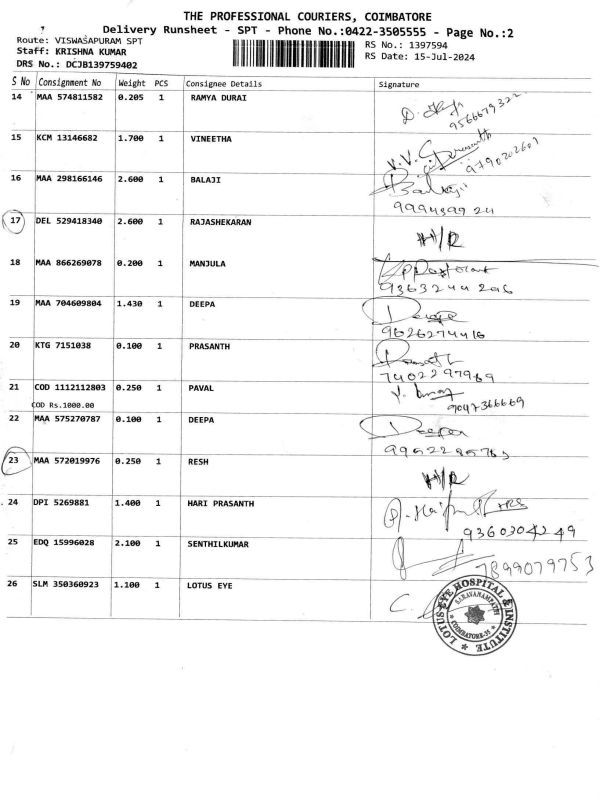 THE PROFESSIONAL COURIERS, COIMBATORE
Delivery Runsheet - SPT - Phone No.:0422-3505555 - Page No.:2
Route: VISWASAPURAM SPT
Staff: KRISHNA KUMAR
DRS No.: DCJB139759402
RS No.: 1397594
RS Date: 15-Jul-2024
S No Consignment No Weight PCS Consignee Details Signature
14 MAA 574811582 0.205 1 RAMYA DURAI
15 KCM 13146682 1.700 1 VINEETHA
9790202601
16 MAA 298166146 2.600 1 BALAJI
Balaji
17 DEL 529418340 2.600 1 RAJASHEKARAN
H/R
18 MAA 866269078 0.200 1 MANJULA
9363244296
19 MAA 704609804 1.430 1 DEEPA
9626274416
20 KTG 7151038 0.100 1 PRASANTH
7402297969
21 COD 1112112803 0.250 1 PAVAL
COD Rs.1000.00
9047366669
22 MAA 575270787 0.100 1 DEEPA
Deepa
23 MAA 572019976 0.250 1 RESH
H/R
24 DPI 5269881 1.400 1 HARI PRASANTH
9360304249
25 EDQ 15996028 2.100 1 SENTHILKUMAR
7899079753
26 SLM 350360923 1.100 1 LOTUS EYE
LOTUS EYE HOSPITAL & INSTITUTE
SARAVANAMPATTI
COIMBATORE-35